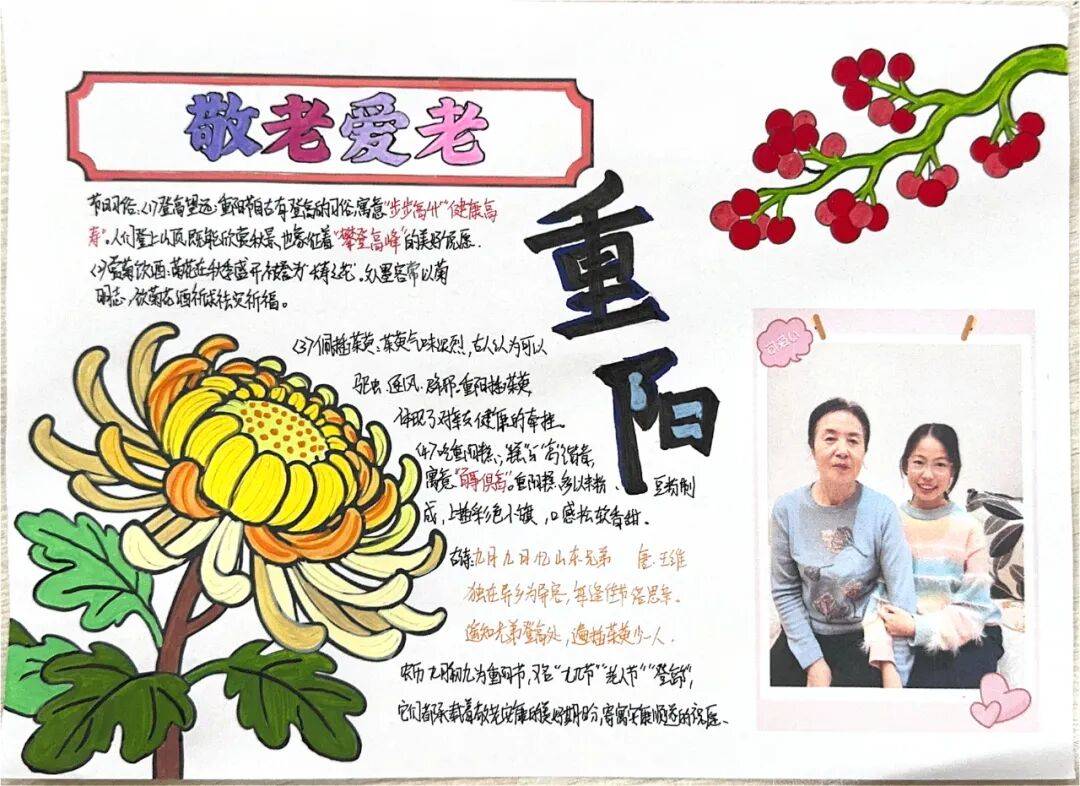 敬老爱老
重阳
节日习俗:<1>登高望远:重阳节自古有登高的习俗,寓意"步步高升""健康高
寿"。人们登上山顶,既能欣赏秋景,也象征着"攀登高峰"的美好祝愿.
<2>赏菊饮酒:菊花在秋季盛开,被誉为"花"。文人墨客常以菊
明志,饮菊花酒祈祛灾祈福。
<3>佩插茱萸:茱萸气味浓烈,古人认为可以
驱虫、逐风、辟邪.重阳插茱萸,
体现了对亲友健康的牵挂.
<4>吃重阳糕:"糕"与"高"谐音,
寓意"百事俱高"。重阳糕多以米粉、豆粉制
成,上插彩色小旗,口感松软香甜.
古诗:九月九日忆山东兄弟 唐·王维
独在异乡为异客,每逢佳节倍思亲。
遥知兄弟登高处,遍插茱萸少一人.
农历九月初九为重阳节,又名"九九节""老人节""登高节",
它们都承载着敬老安康的美好期盼,寄寓安康顺遂的祝愿、
可爱心